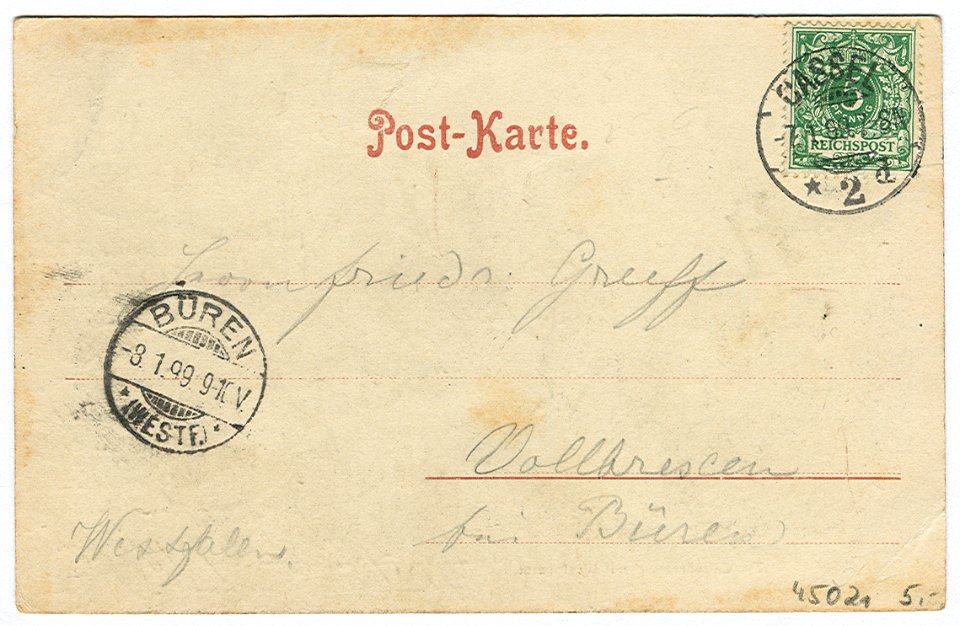 Post-Karte.
5
PFENNIG
REICHSPOST
CASSEL
* 2 d
Greeff
BÜREN
-8.1.99 9-10V.
* (WESTF.) *
bei Büren
Westfalen.
45021 5,-